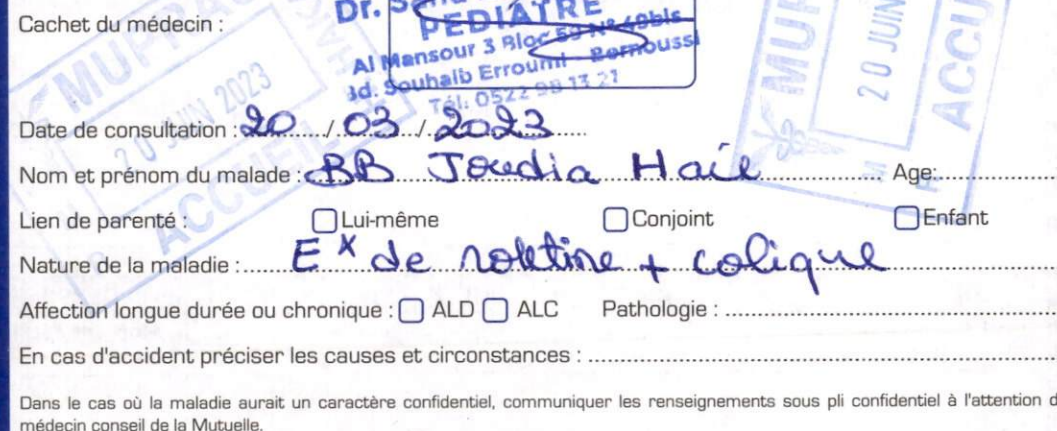 Cachet du médecin :
Dr.
PEDIATRE
Al Mansour 3 Bloc 59 N° 49bis
Bd. Souhaib Erroumi - Bernoussi
Tél: 0522 98 13 21
MUPRAS
20 JUIN 2023
ACCUEIL
MUP
20 JUIN
ACCU
Date de consultation : 20 / 03 / 2023
Nom et prénom du malade : BB Joudia Hail Age:
Lien de parenté : Lui-même Conjoint Enfant
Nature de la maladie : Ex de routine + colique
Affection longue durée ou chronique : ALD ALC Pathologie :
En cas d'accident préciser les causes et circonstances :
Dans le cas où la maladie aurait un caractère confidentiel, communiquer les renseignements sous pli confidentiel à l'attention d
médecin conseil de la Mutuelle.